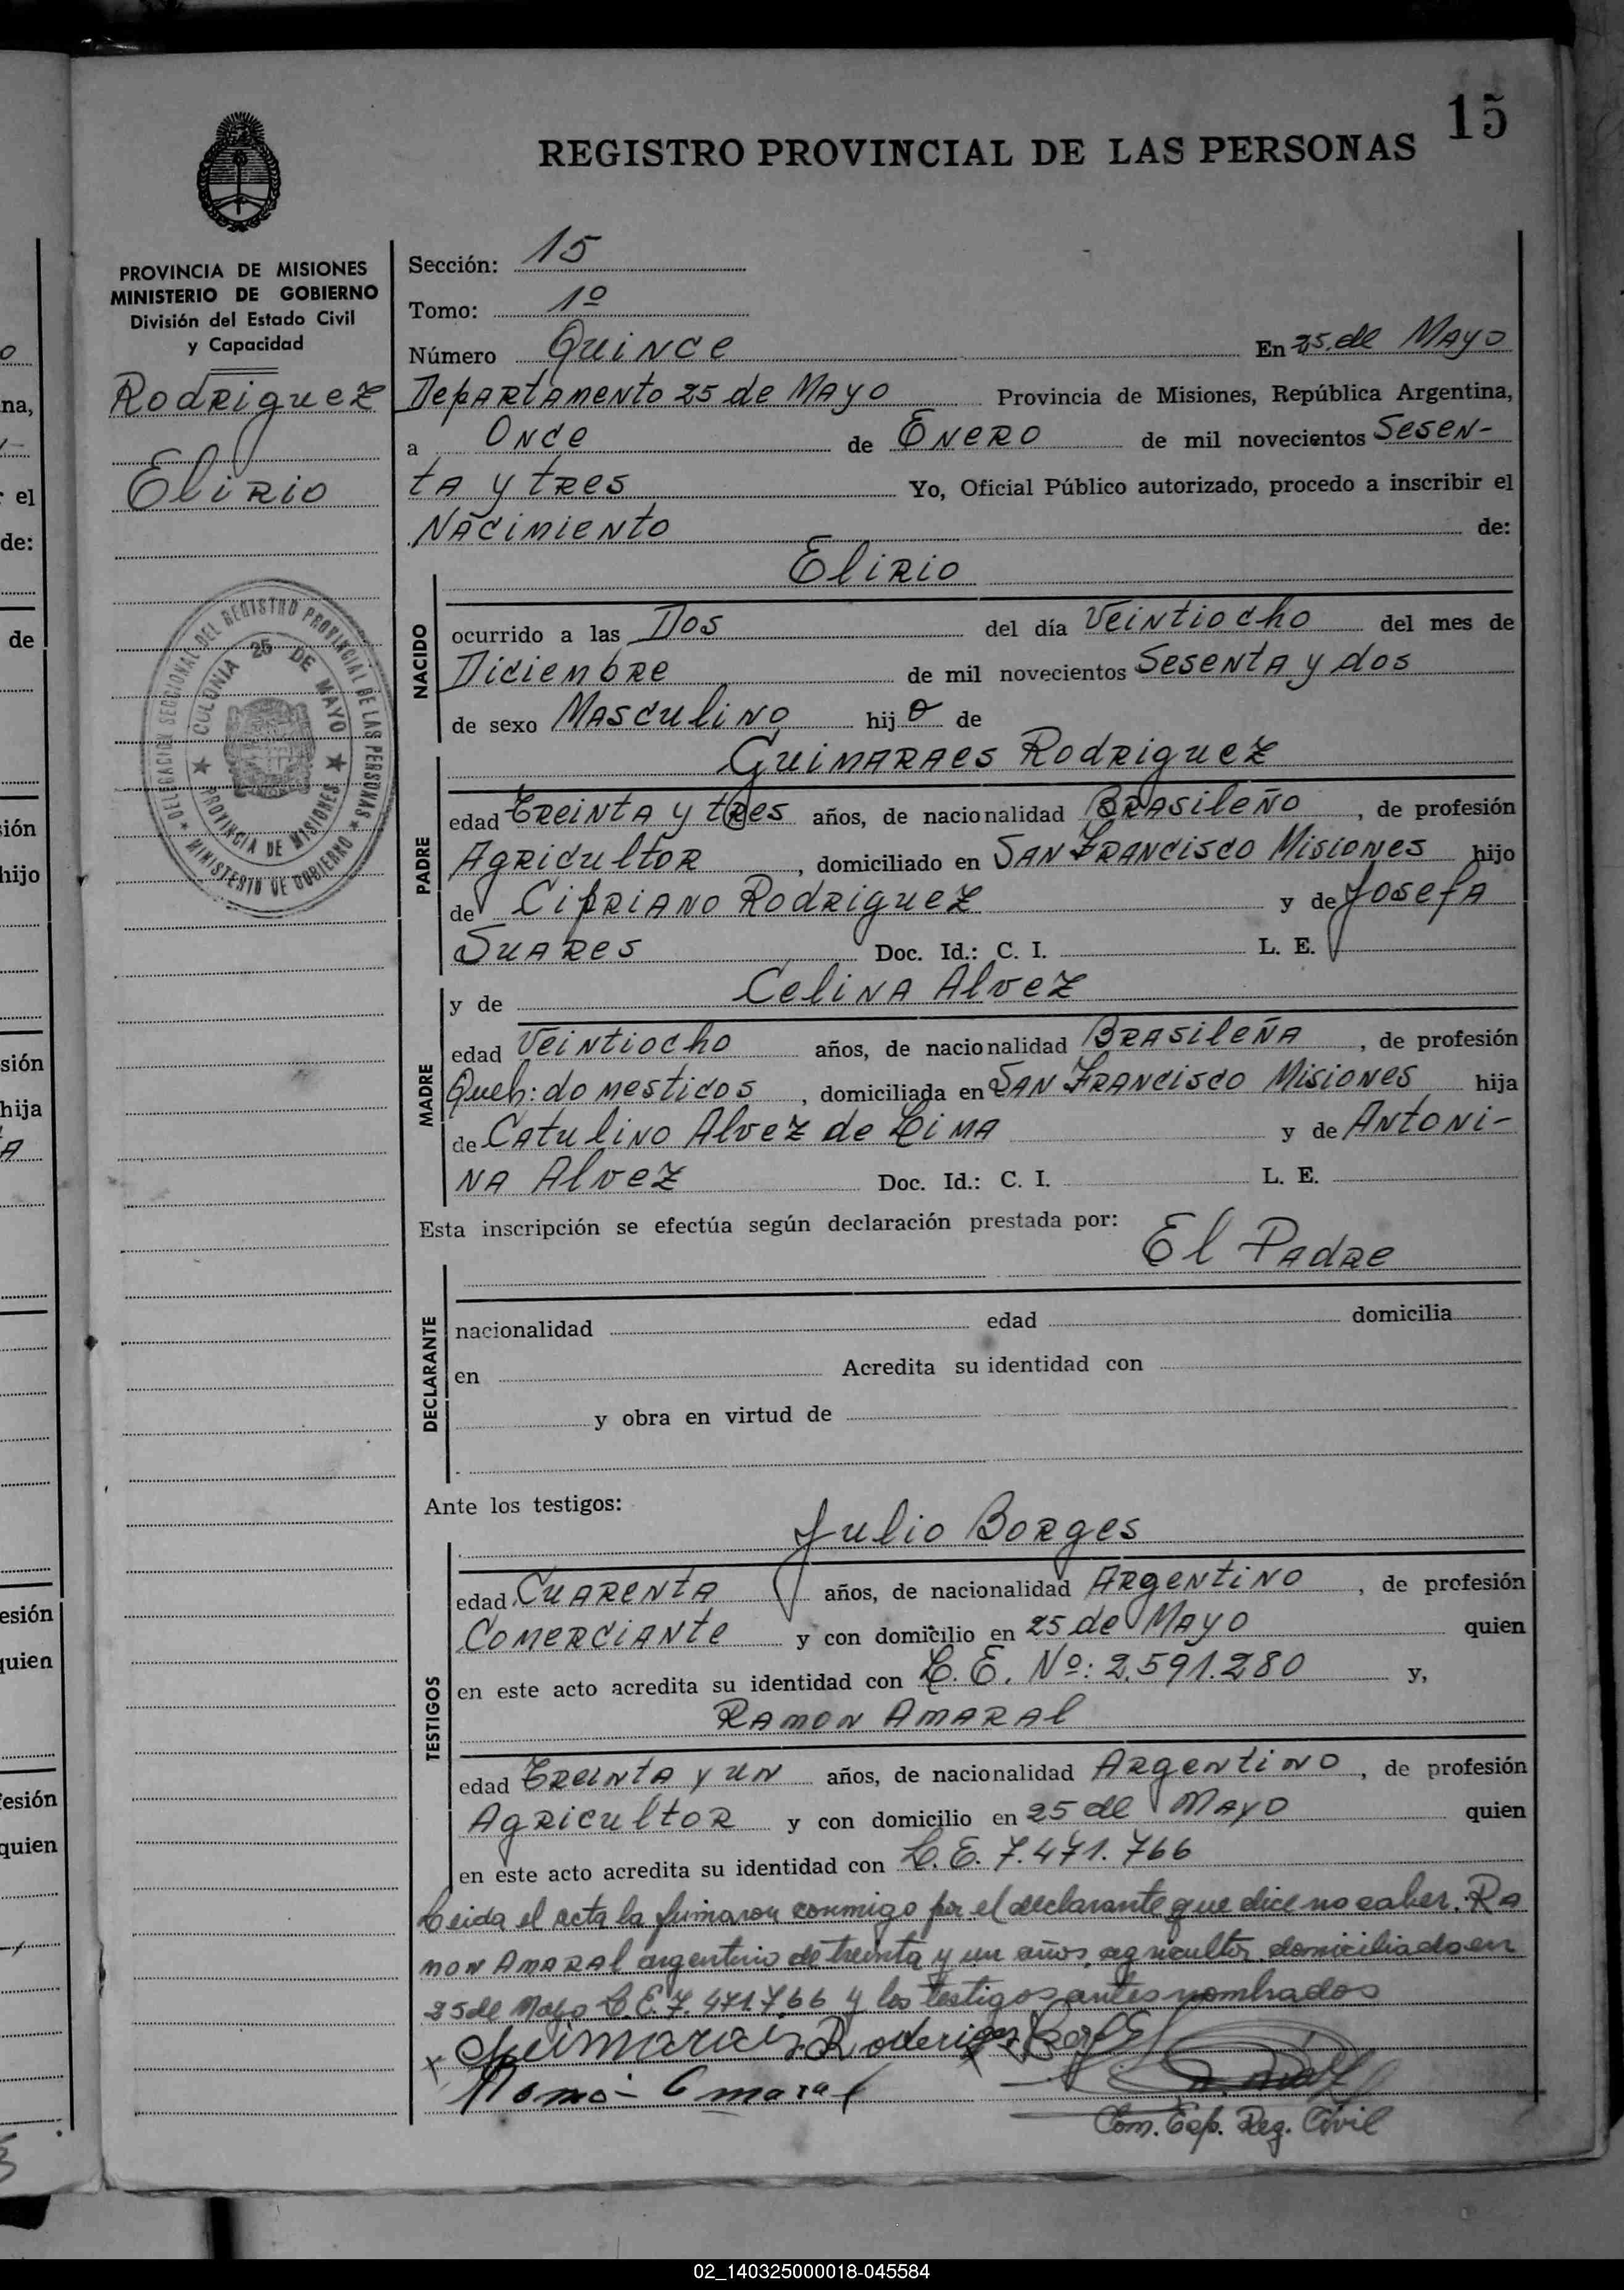 15
REGISTRO PROVINCIAL DE LAS PERSONAS
PROVINCIA DE MISIONES
MINISTERIO DE GOBIERNO
División del Estado Civil
y Capacidad
Rodriguez
Elirio
DELEGACION SECCIONAL DEL REGISTRO PROVINCIAL DE LAS PERSONAS
★ MINISTERIO DE GOBIERNO ★
COLONIA 25 DE MAYO
★ PROVINCIA DE MISIONES ★
Sección: 15
Tomo: 1º
Número Quince En 25 de Mayo
Departamento 25 de Mayo Provincia de Misiones, República Argentina,
a Once de Enero de mil novecientos Sesen-
ta y tres Yo, Oficial Público autorizado, procedo a inscribir el
Nacimiento de:
Elirio
NACIDO
ocurrido a las Dos del día Veintiocho del mes de
Diciembre de mil novecientos Sesenta y dos
de sexo Masculino hij o de
Guimaraes Rodriguez
PADRE
edad Treinta y tres años, de nacionalidad Brasileño, de profesión
Agricultor, domiciliado en San Francisco Misiones hijo
de Cipriano Rodriguez y de Josefa
Suares Doc. Id.: C. I. L. E.
y de Celina Alvez
MADRE
edad Veintiocho años, de nacionalidad Brasileña, de profesión
Queh: domesticos, domiciliada en San Francisco Misiones hija
de Catulino Alvez de Lima y de Antoni-
na Alvez Doc. Id.: C. I. L. E.
Esta inscripción se efectúa según declaración prestada por:
El Padre
DECLARANTE
nacionalidad edad domicilia
en Acredita su identidad con
y obra en virtud de
Ante los testigos:
Julio Borges
TESTIGOS
edad Cuarenta años, de nacionalidad Argentino, de profesión
Comerciante y con domicilio en 25 de Mayo quien
en este acto acredita su identidad con L. E. Nº: 2.591.280 y,
Ramon Amaral
edad Treinta y un años, de nacionalidad Argentino, de profesión
Agricultor y con domicilio en 25 de Mayo quien
en este acto acredita su identidad con L. E. 7.471.766
Leida el acta la firmaron conmigo por el declarante que dice no saber. Ra
mon Amaral argentino de treinta y un años, agricultor domiciliado en
25 de Mayo L. E. 7.471.766 y los testigos antes nombrados
x Guimarais Roderigs
Com. Esp. Reg. Civil
02_140325000018-045584